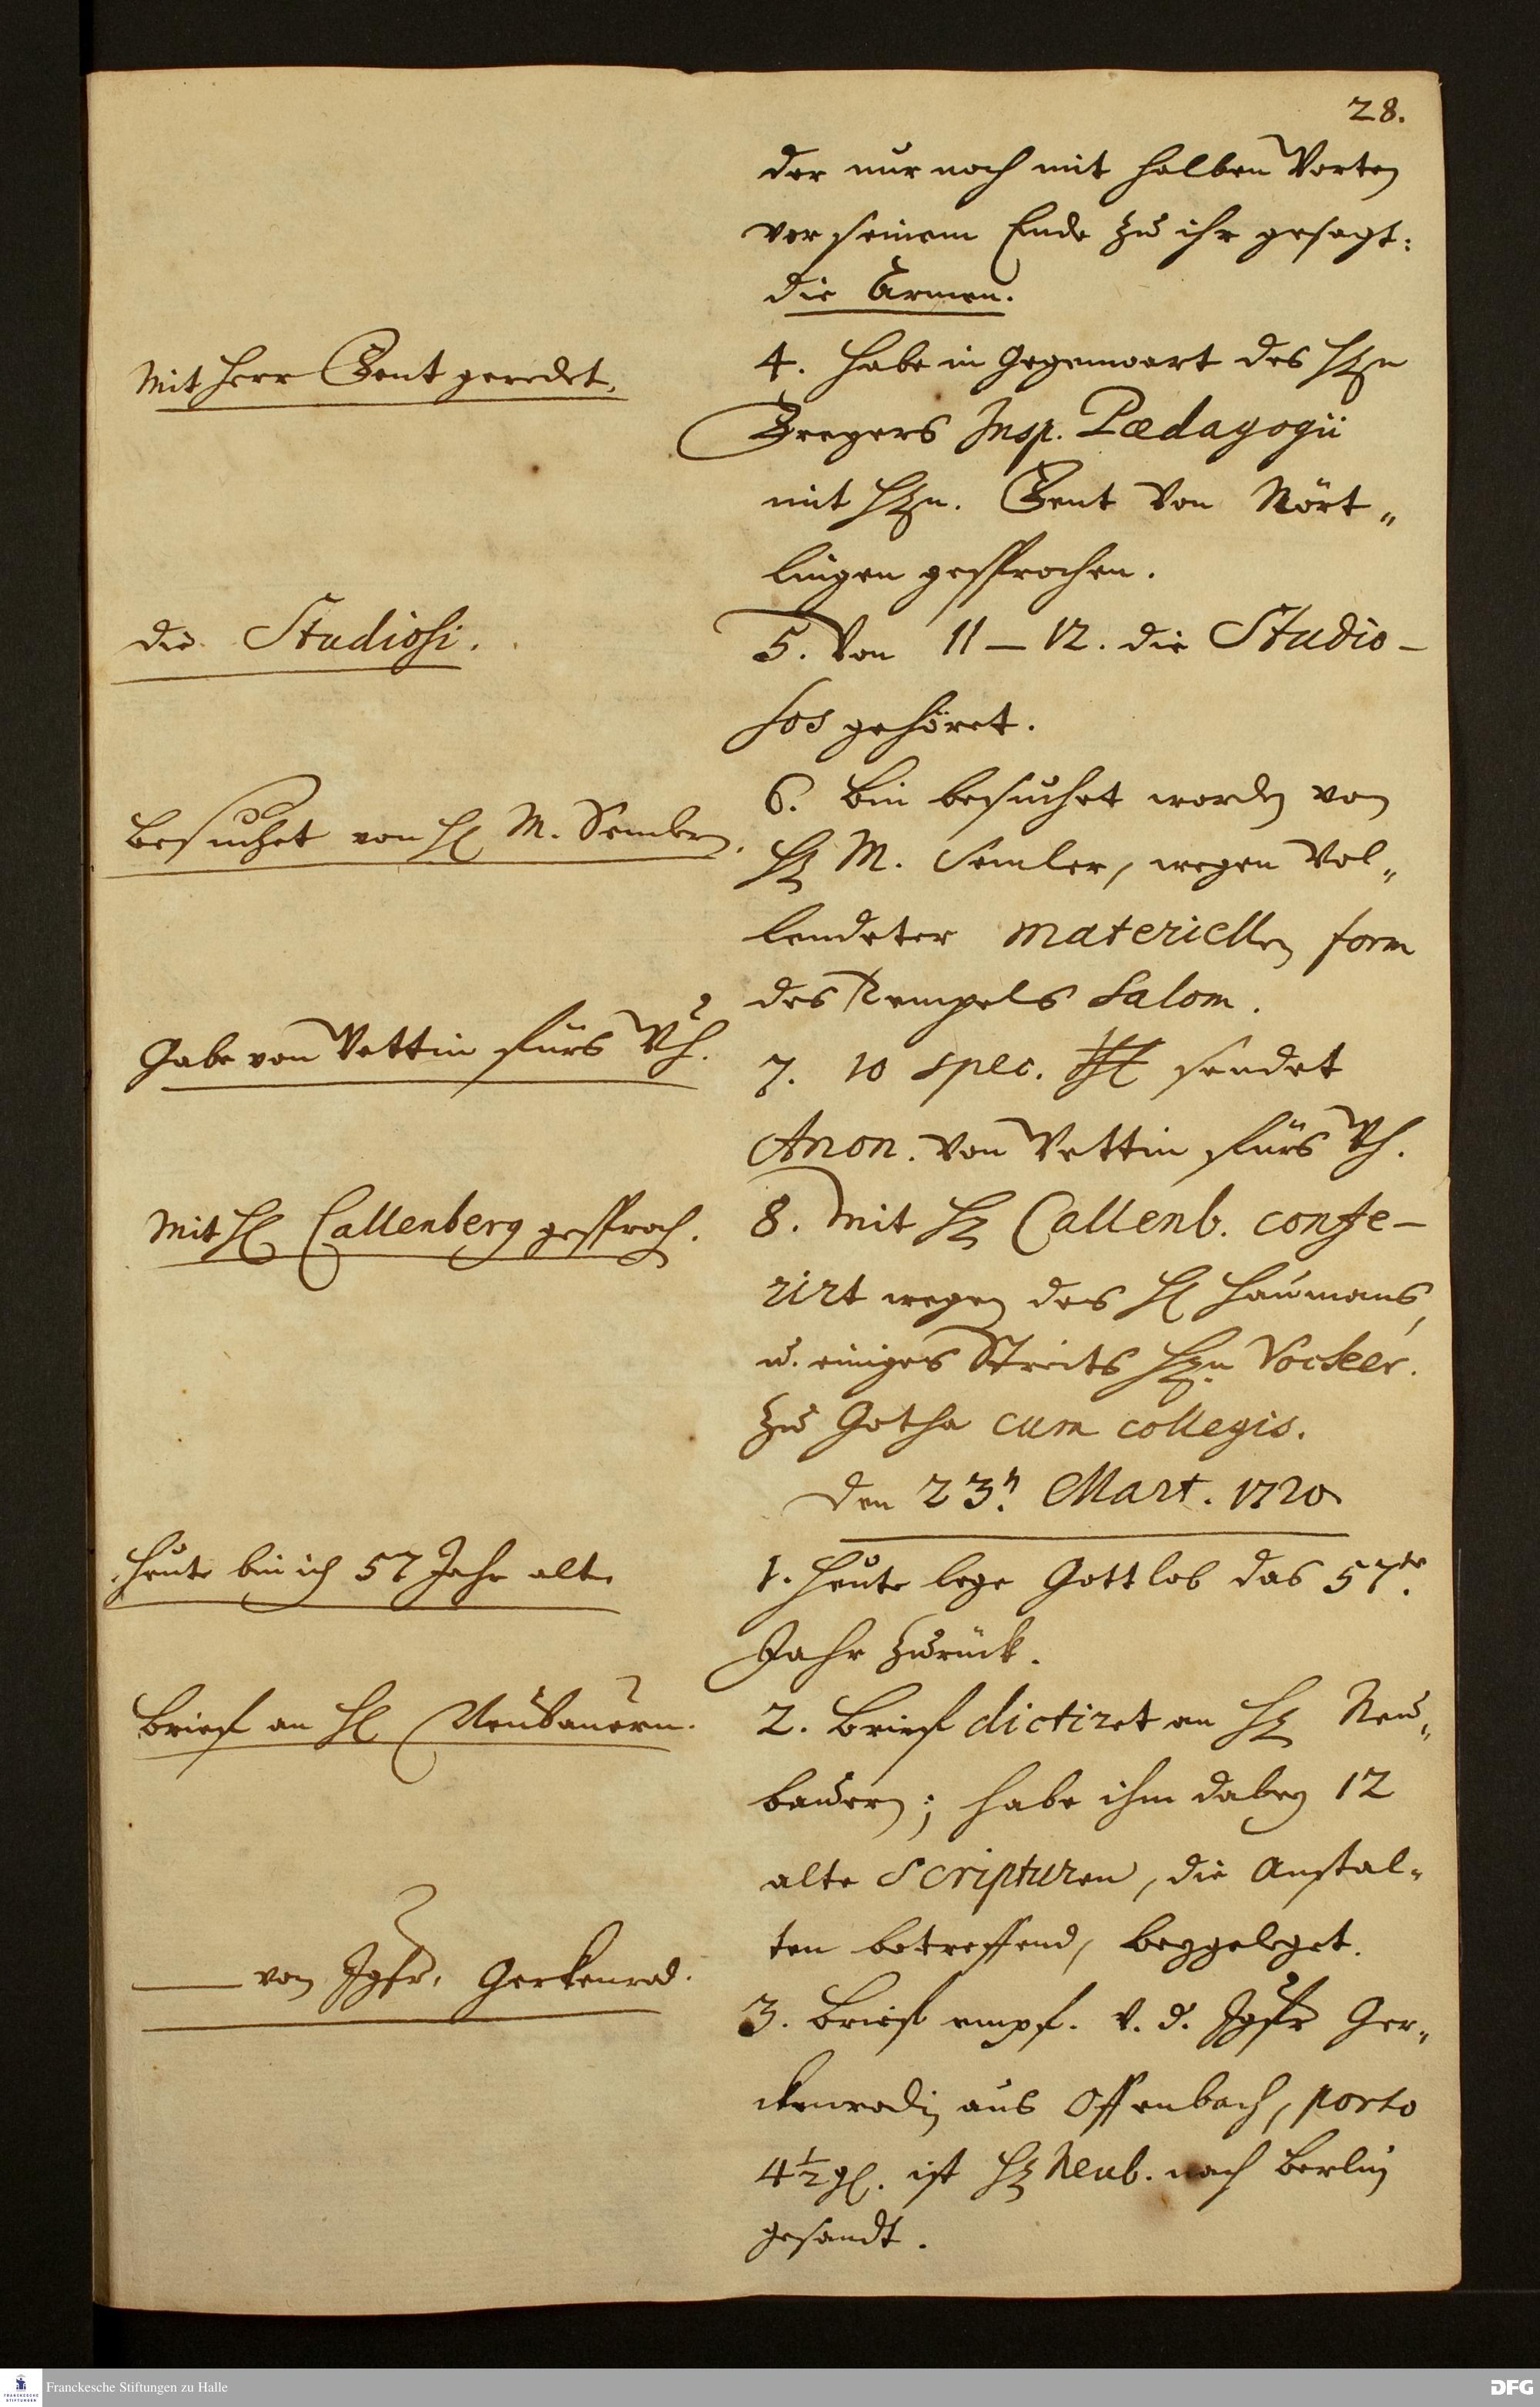 28.
der nur noch mit halben Worten
vor seinem Ende zu ihr gesagt:
die Armen.
Mit Herr Zent geredet.
4. Habe in Gegenwart des HErn
Insp. Pædagogii
mit HEn. Zent von Nört„
lingen gesprochen.
die Studiosi.
5. Von 11–12. die Studio-
sos gehöret.
Besuchet von H M. Semlern.
6. Bin besuchet worden von
H M. Semler, wegen Vol„
lendeter materiellen form
des Tempels Salom.
Gabe von Wettin fürs Wh.
7. 10 spec. sendet
Anon. von Wettin fürs Wh.
Mit H Callenberg gesproch.
8. Mit H Callenb. confe-
rirt wegen des H Haumans,
u. einiges Streits HEn Vocker.
zu Gotha cum collegis.
Den 23n. Mart. 1720
Heute bin ich 57 Jahr alt.
1. Heute lege Gottlob das 57te.
Jahr zurück.
Brief an H Neubauern.
2. Brief dictiret an H Neu„
bauern; habe ihm dabey 12
alte Scripturen, die Anstal-
ten betreffend, beygeleget.
— von Jgfr. Gerkenrod.
3. Brief empf. v. d. Jgfr Ger„
ckenrodin aus Offenbach, porto
4½ g. ist H Neub. nach Berlin
gesandt.
Franckesche Stiftungen zu Halle
DFG